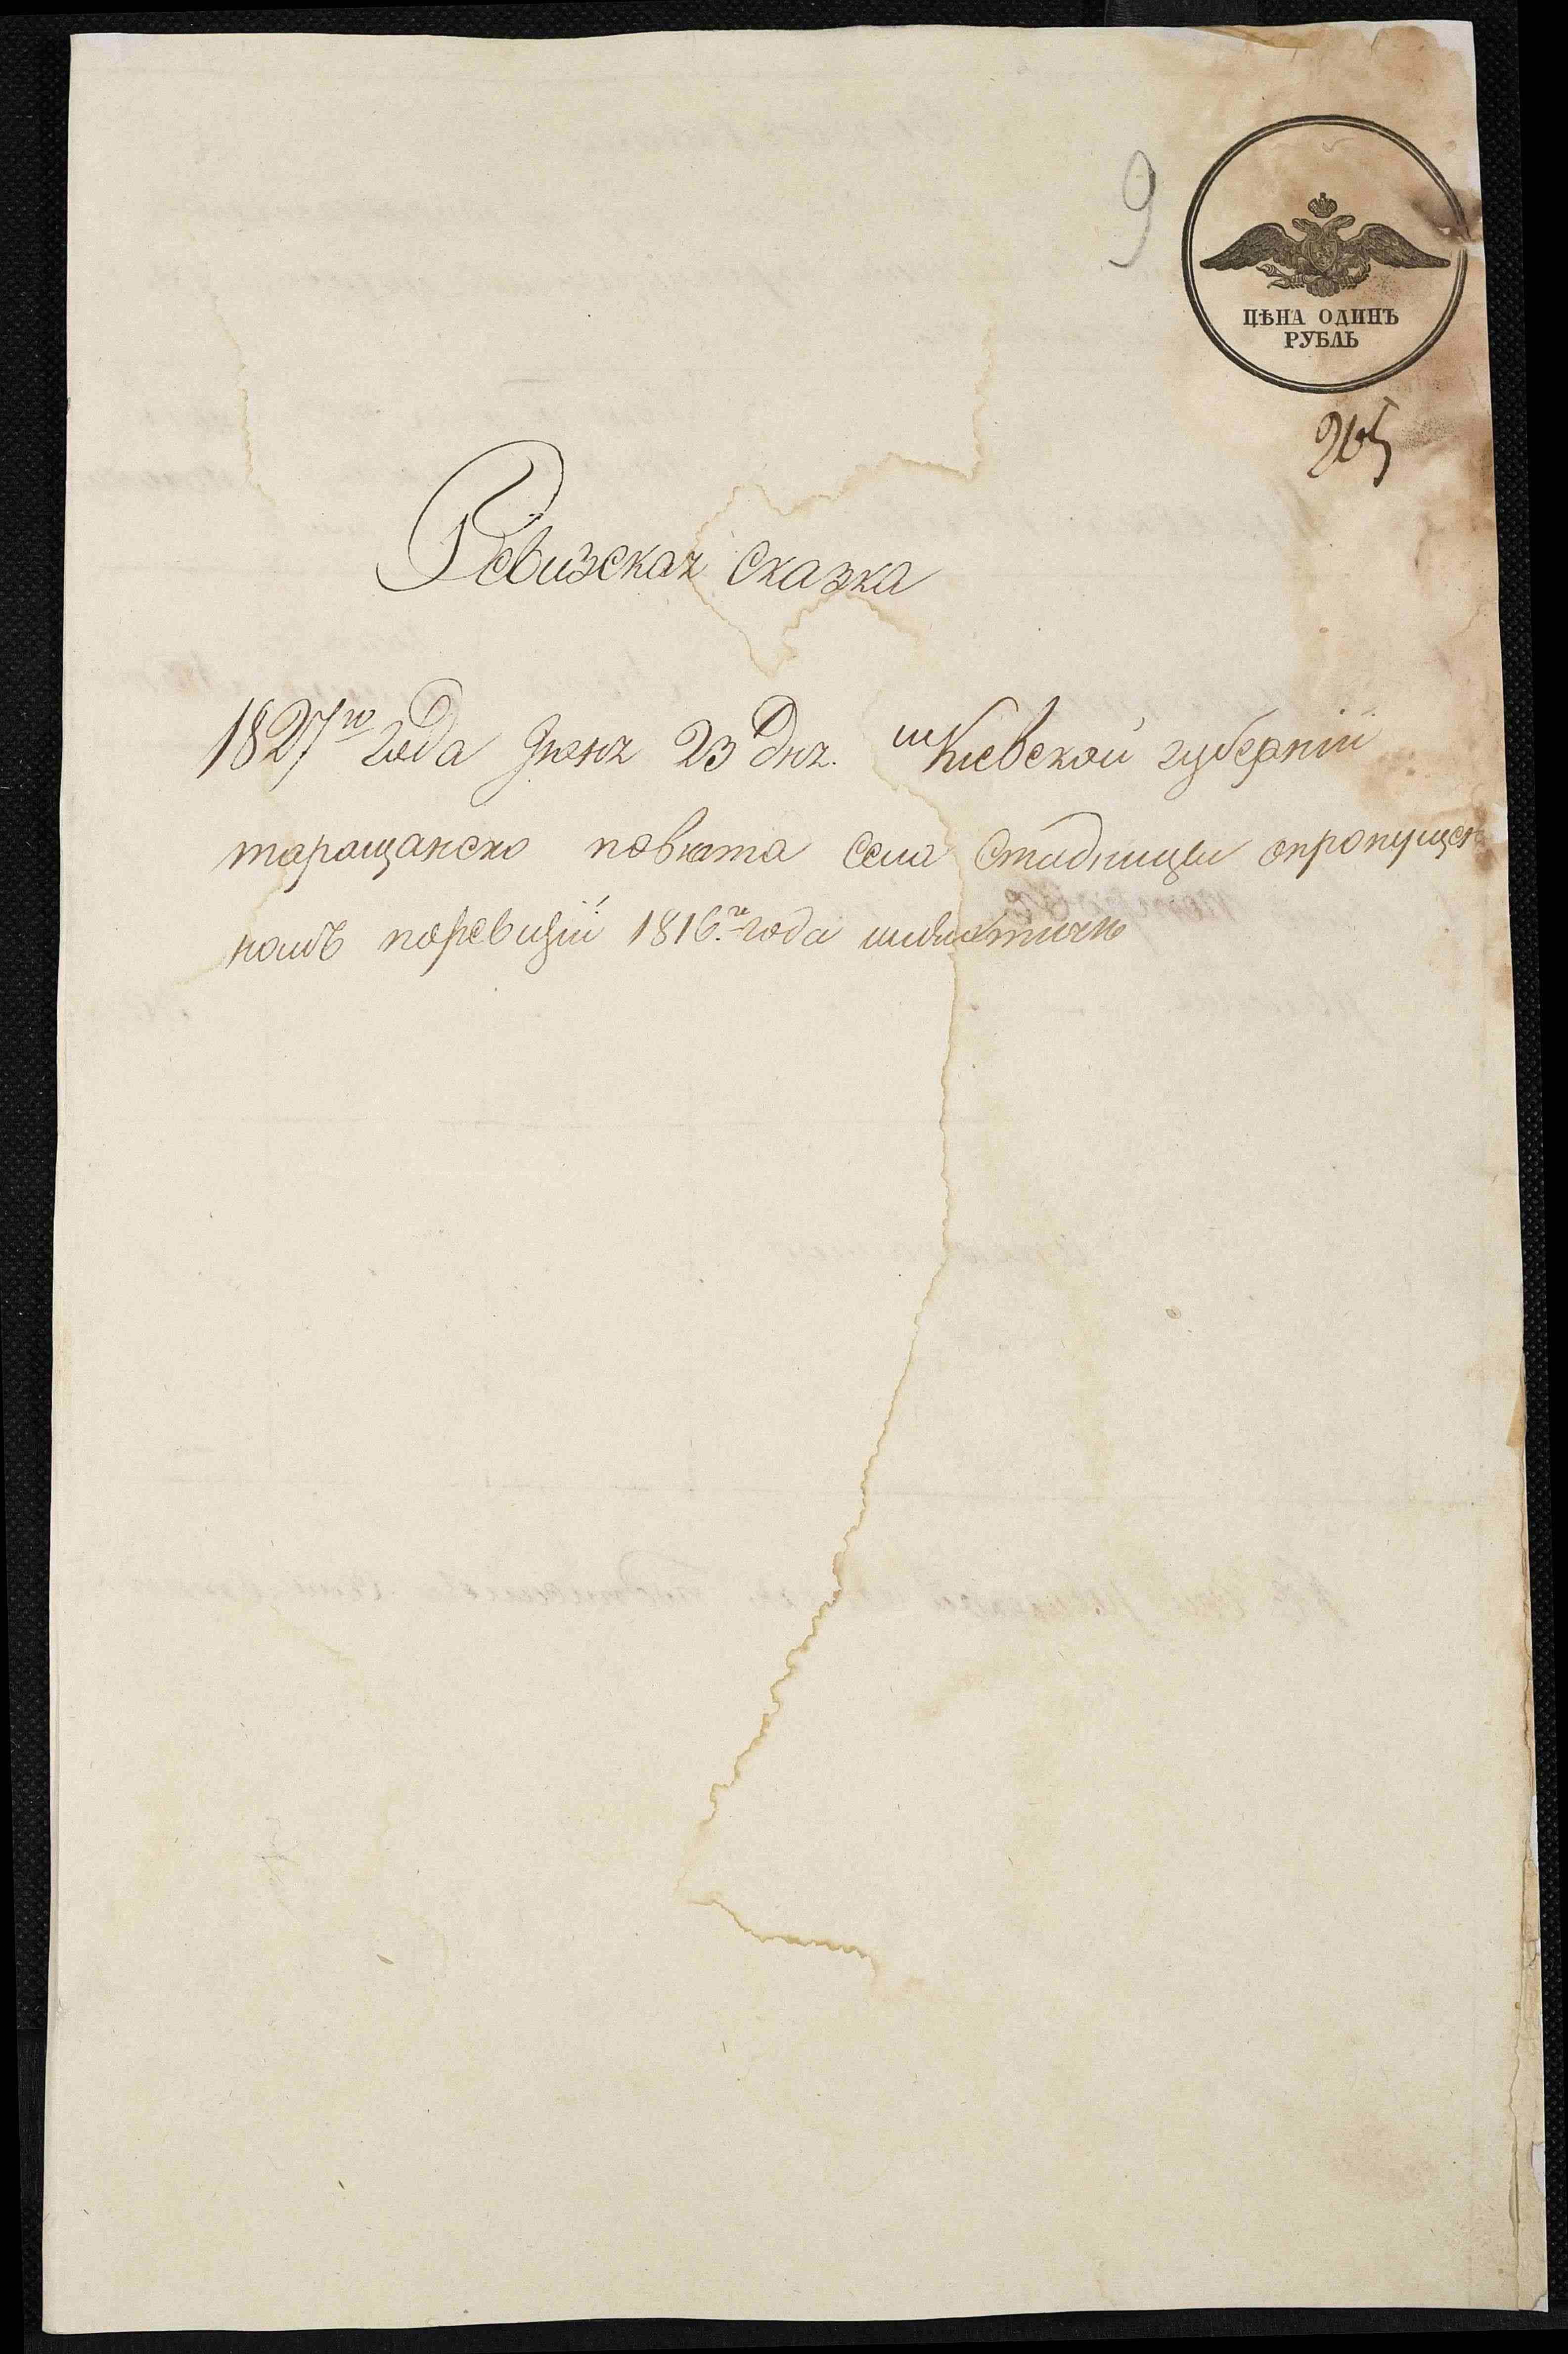 9
ЦѢНА ОДИНЪ
РУБЛЬ
265
Ревизская сказка
1827го года Июня 23 Дня. Киевской губерніи
таращанско повюта села Стадницы опропущен
номъ поревизіи 1816.го года шляхтичю